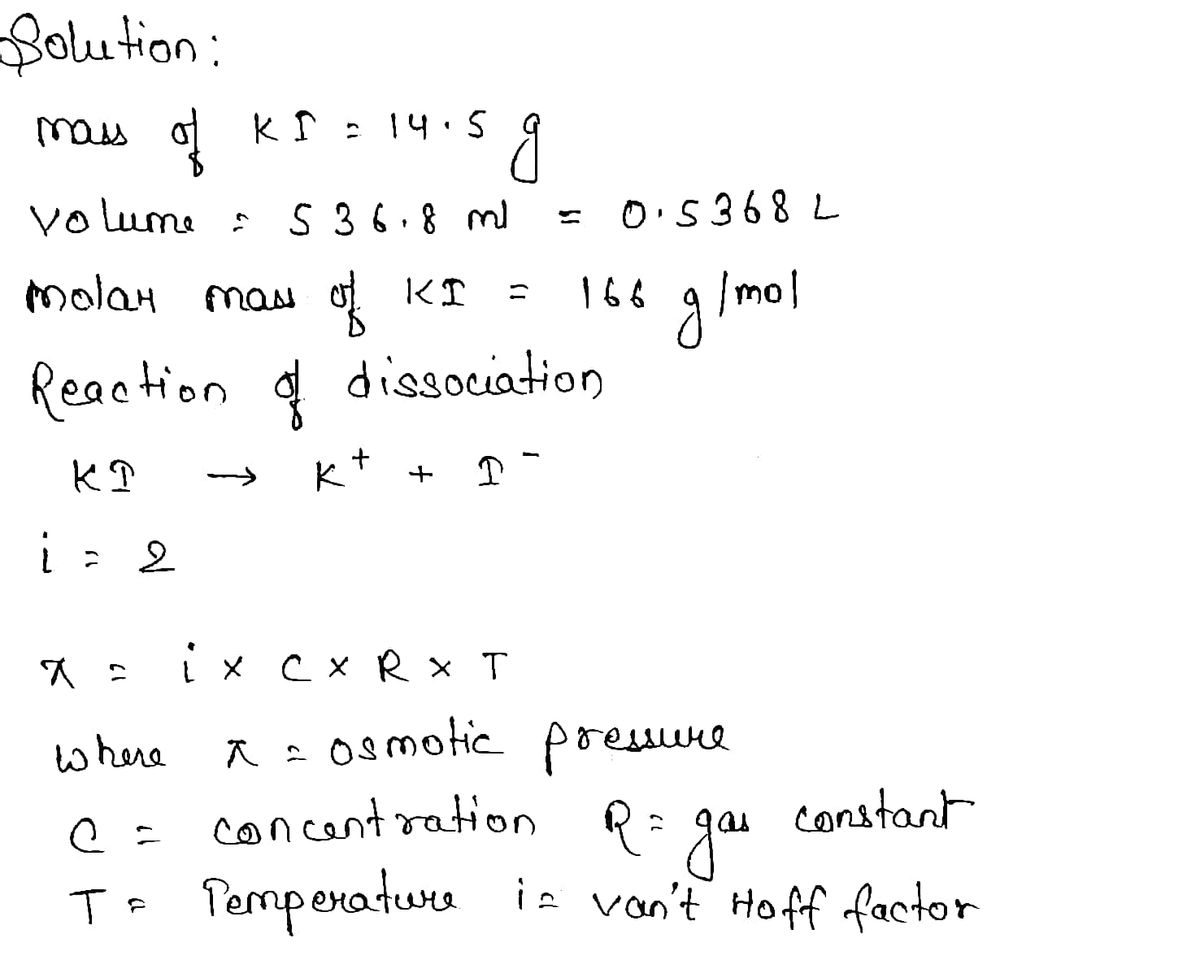 Solution:
mass of KI = 14.5 g
volume = 536.8 ml = 0.5368 L
molar mass of KI = 166 g/mol
Reaction of dissociation
KI → K⁺ + I⁻
i = 2
π = i × C × R × T
where π = osmotic pressure
C = concentration R = gas constant
T = Temperature i = van't Hoff factor